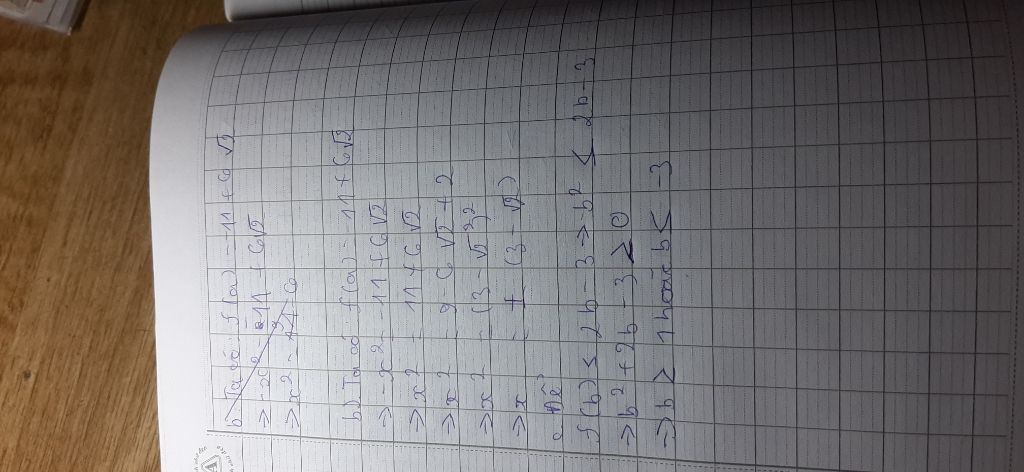 b. Ta có: f(a) = -11 + 6√2
=> -x² = -11 + 6√2
=> x² =
b) Ta có f(a) = -11 + 6√2
=> -x² = -11 + 6√2
=> x² = 11 + 6√2
=> x² = 9 - 6√2 + 2
=> x² = (3 - √2)²
=> x = ± (3 - √2)
c. Để
f(b) ≤ 2b - 3 => -b² ≤ 2b - 3
=> b² + 2b - 3 ≥ 0
=> b ≥ 1 hoặc b ≤ -3